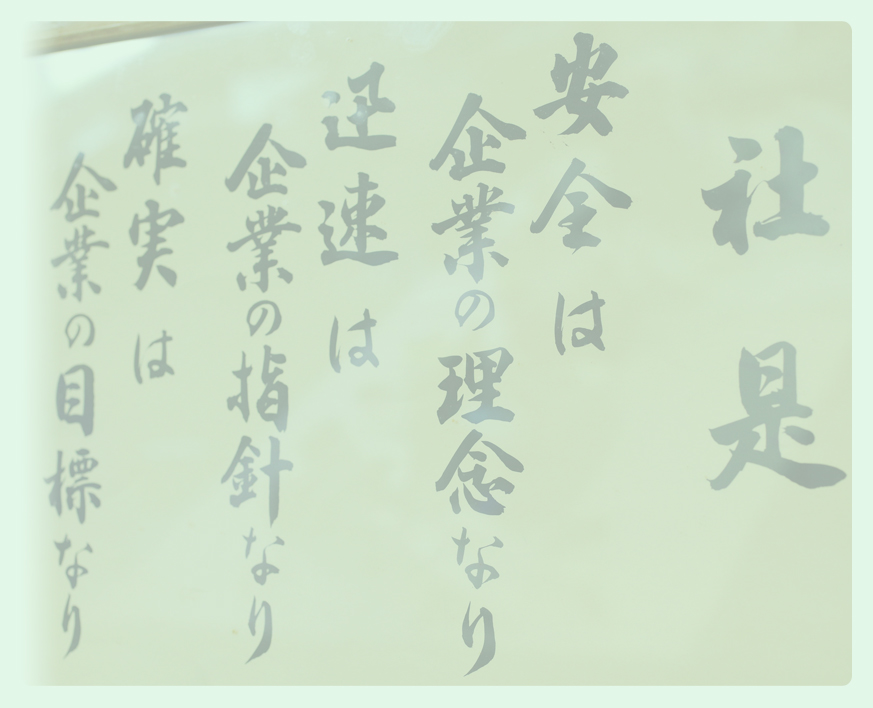 社是
安全は
企業の理念なり
迅速は
企業の指針なり
確実は
企業の目標なり